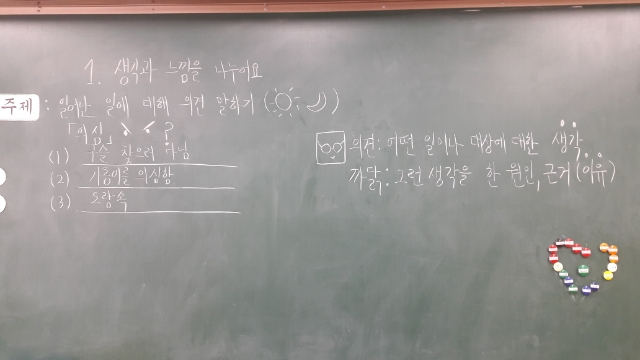 1. 생각과 느낌을 나누어요
주제 : 일어난 일에 대해 의견 말하기 ( )
?
(1) 구슬 찾으러 다님
(2) 기렁이를 의심함
(3) 도랑 속
의견 : 어떤 일이나 대상에 대한 생각
까닭 : 그런 생각을 한 원인, 근거 (이유)